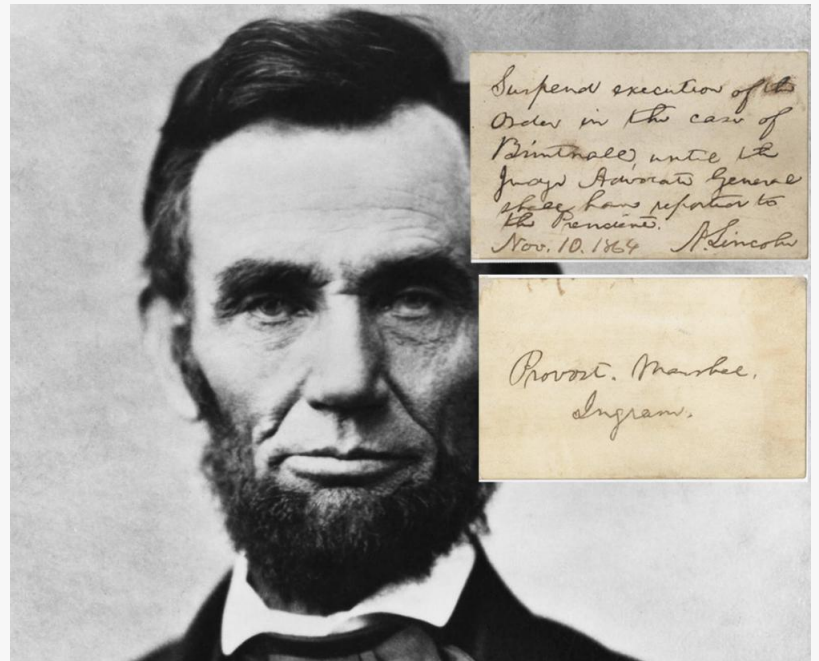 Suspend execution of the
order in the case of
until the
Judge Advocate General
shall have reported to
the President.
Nov. 10. 1864 A. Lincoln
Provost. Marshal.
Ingram.